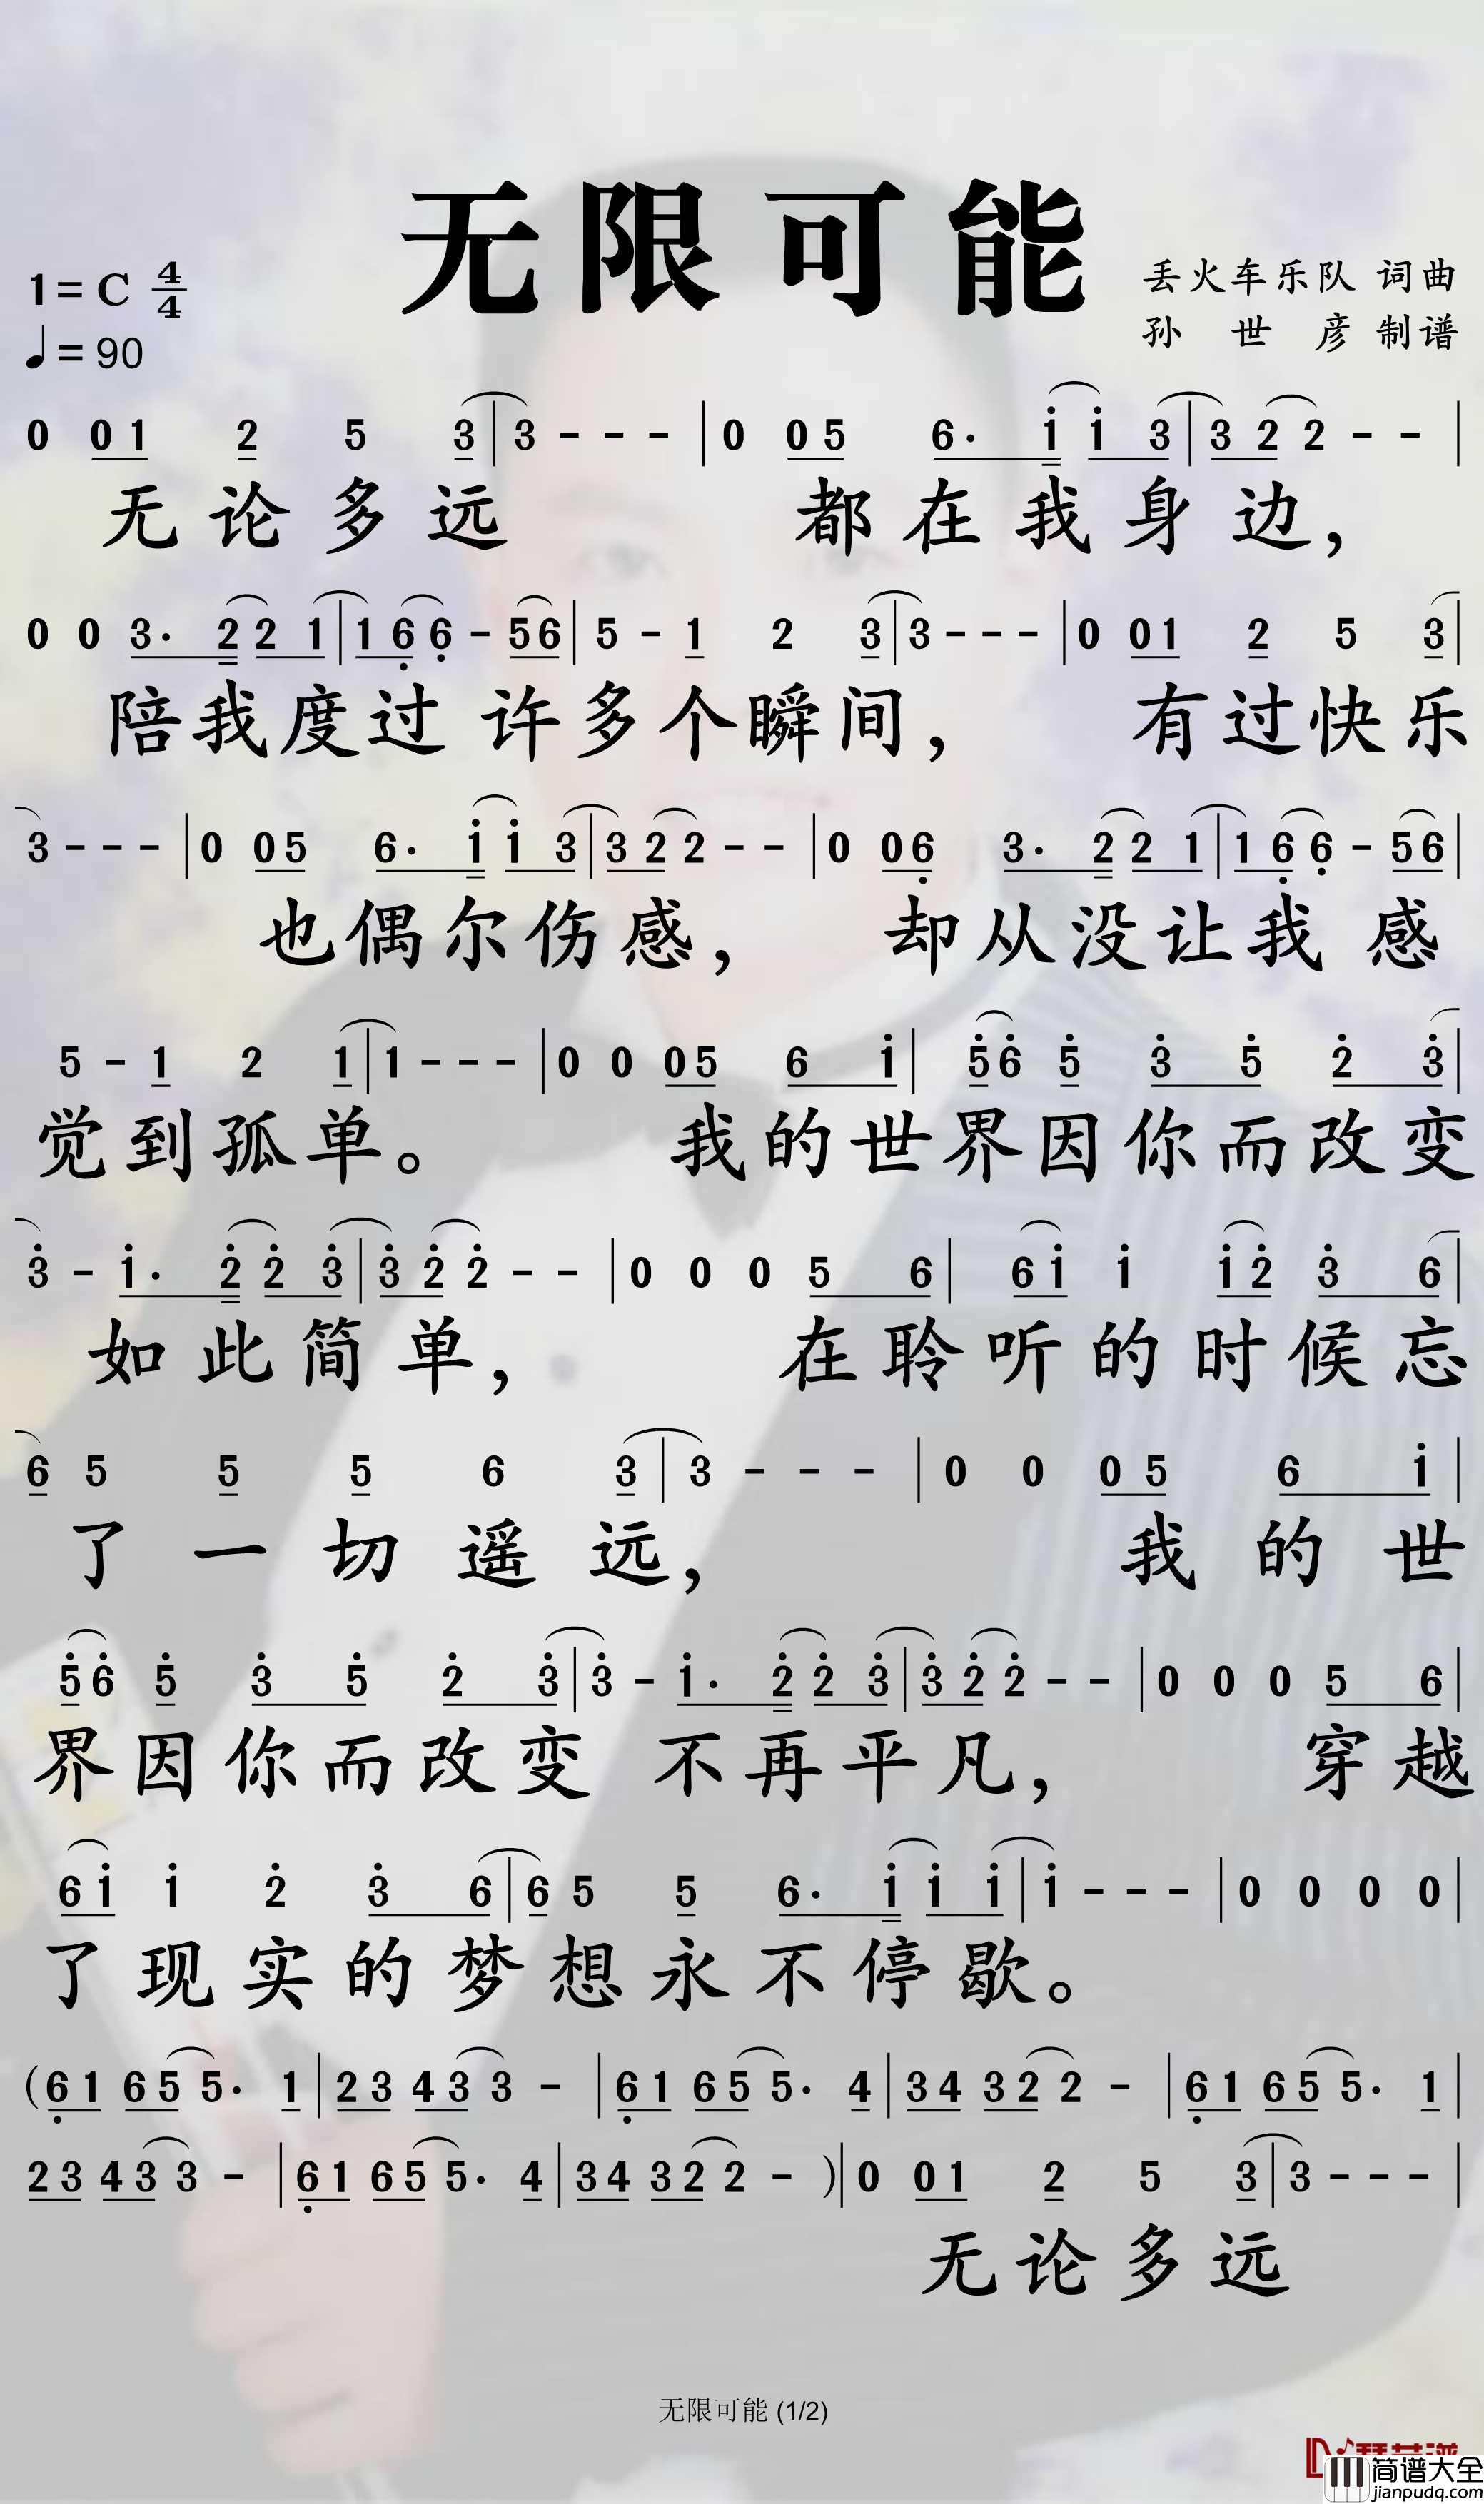 无限可能
1=C 4/4
丢火车乐队 词曲
♩=90
孙 世 彦 制谱
0 01 2 5 3|3 - - -|0 05 6· i i 3|3 2 2 - -|
无论多远 都在我身边，
0 0 3· 2 2 1|1 6 6 - 56|5 - 1 2 3|3 - - -|0 01 2 5 3|
陪我度过 许多个瞬间， 有过快乐
3 - - -|0 05 6· i i 3|3 2 2 - -|0 06 3· 2 2 1|1 6 6 - 56|
也偶尔伤感， 却从没让我 感
5 - 1 2 1|1 - - -|0 0 05 6 i|56 5 3 5 2 3|
觉到孤单。 我的世界因你而改变
3 - i· 2 2 3|3 2 2 - -|0 0 0 5 6|6 i i i 2 3 6|
如此简单， 在聆听的时候忘
6 5 5 5 6 3|3 - - -|0 0 05 6 i|
了一切遥远， 我的世
56 5 3 5 2 3|3 - i· 2 2 3|3 2 2 - -|0 0 0 5 6|
界因你而改变 不再平凡， 穿越
6 i i 2 3 6|6 5 5 6· i i i|i - - -|0 0 0 0|
了现实的梦想永不停歇。
(61 65 5· 1|23 43 3 -|61 65 5· 4|34 32 2 -|61 65 5· 1|
23 43 3 -|61 65 5· 4|34 32 2 -)|0 01 2 5 3|3 - - -|
无论多远
无限可能 (1/2)
简谱大全
jianpudq.com